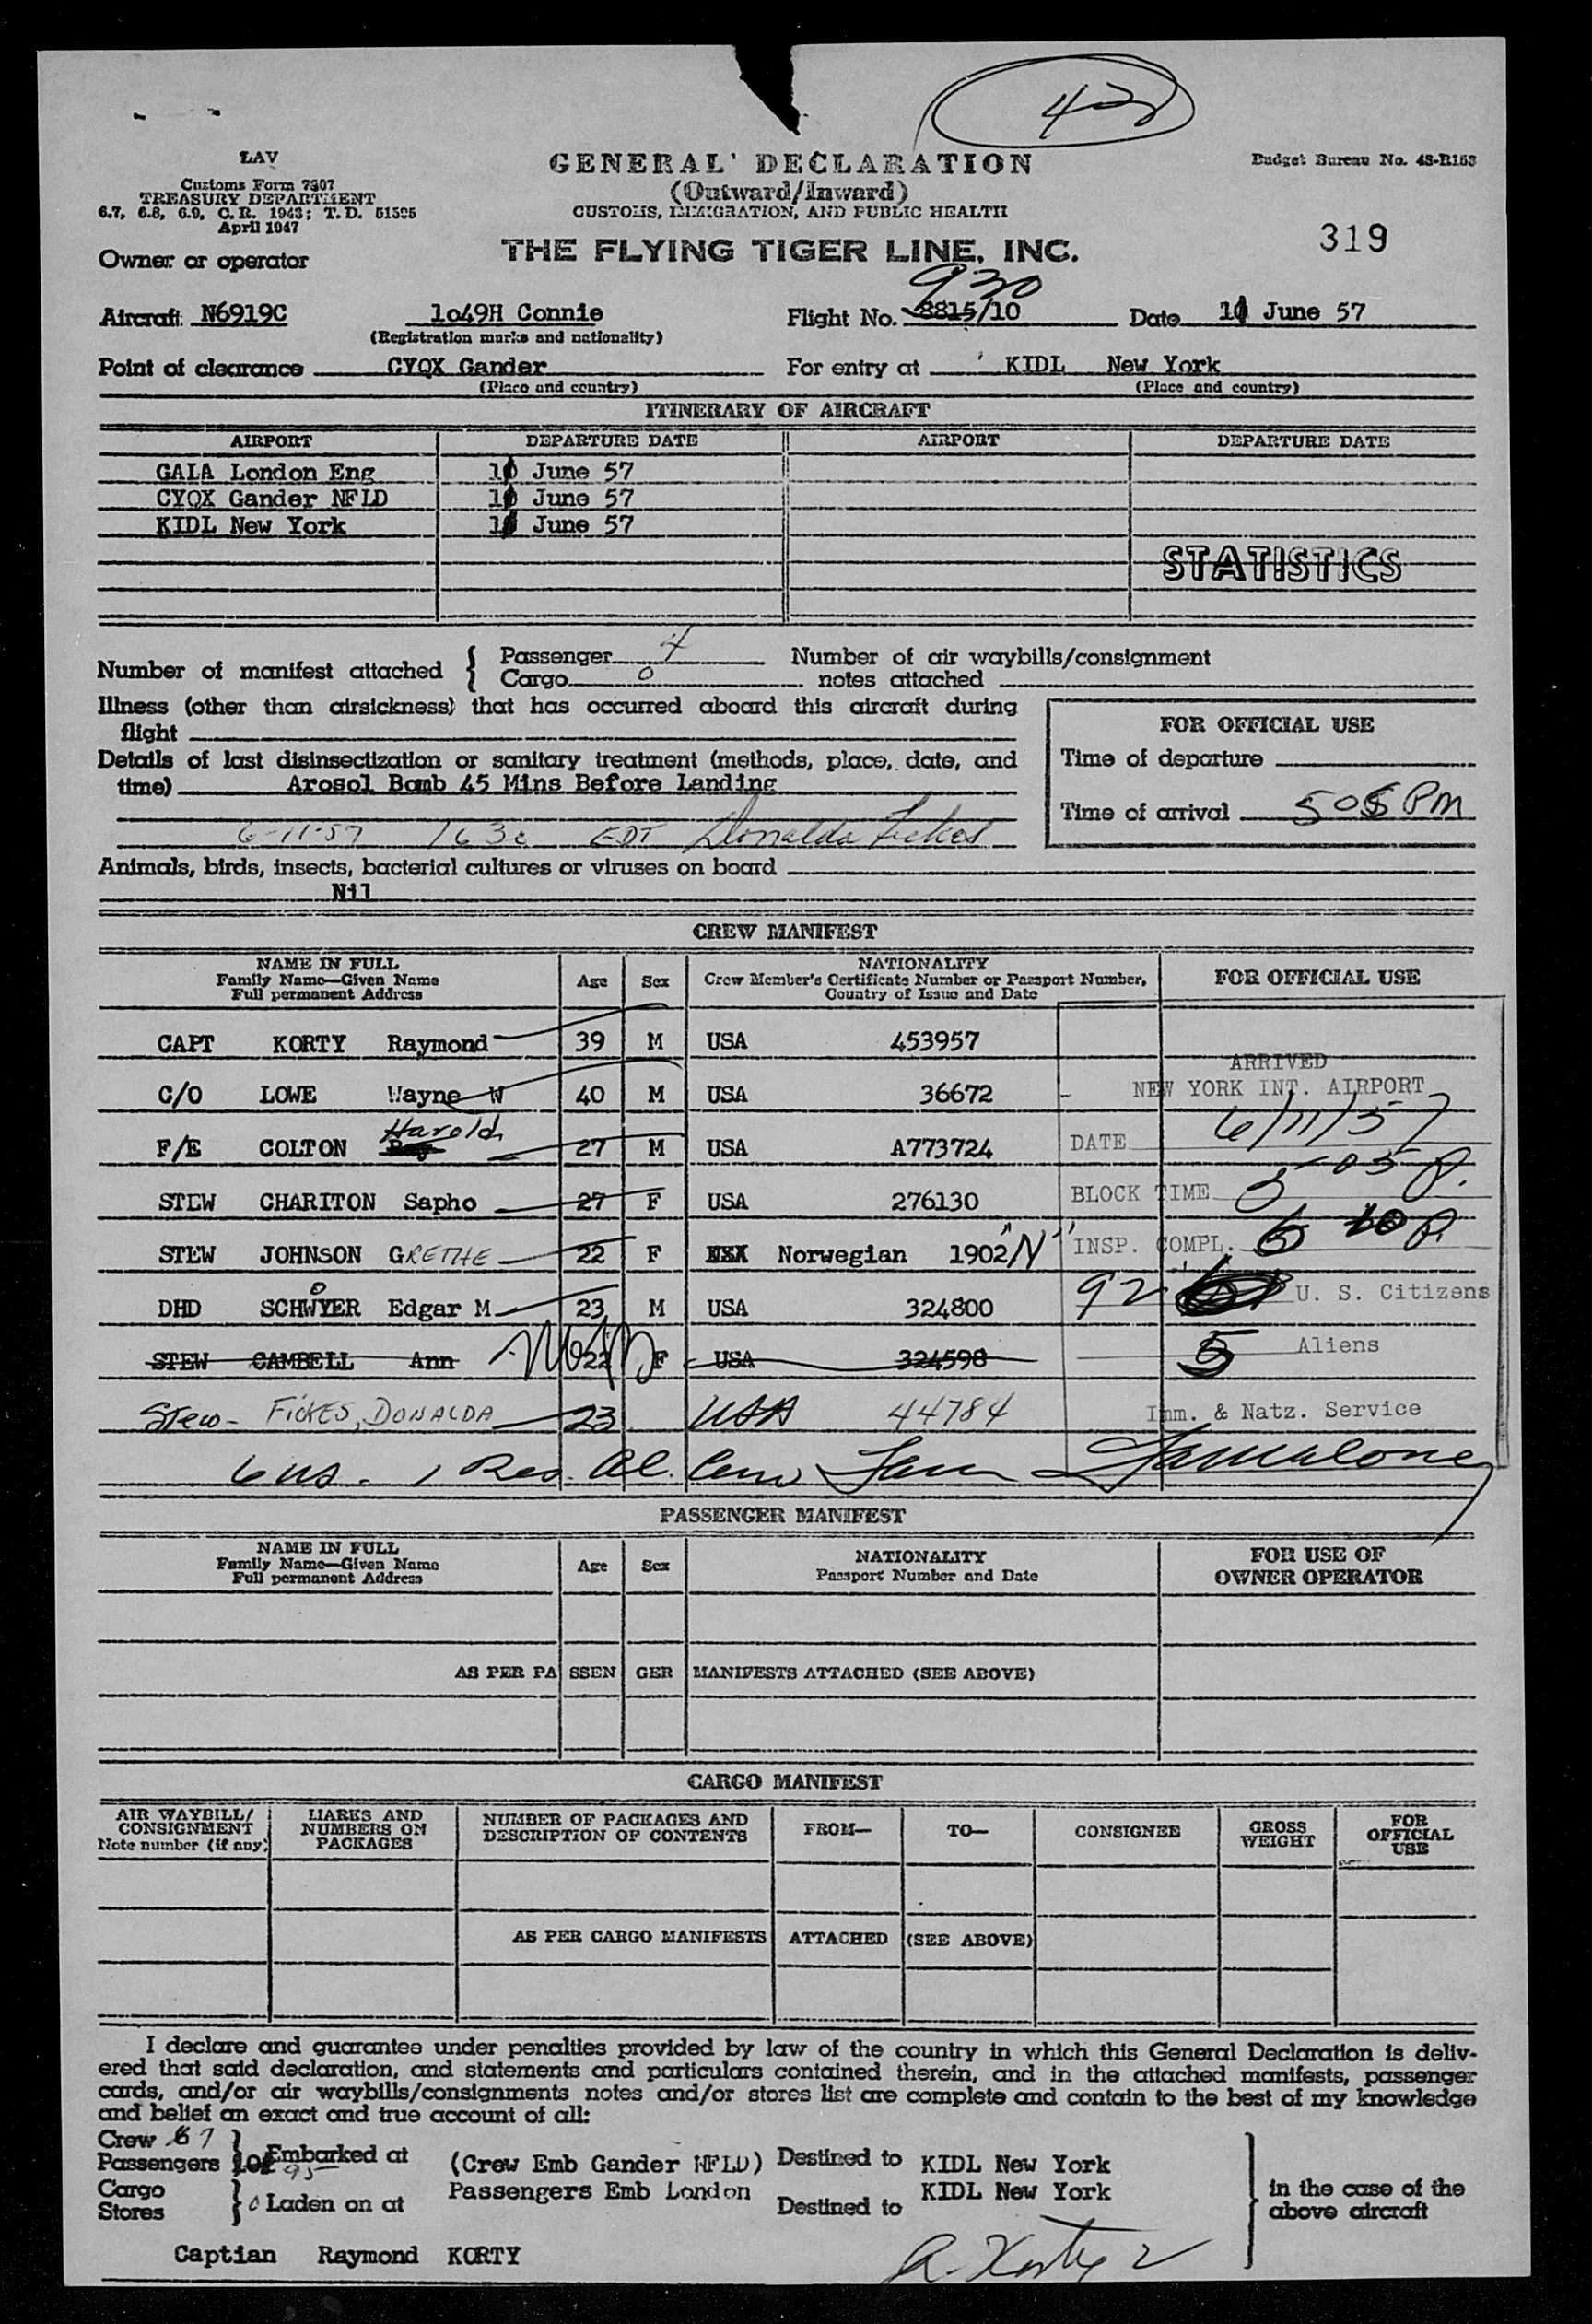 LAV
Customs Form 7507
TREASURY DEPARTMENT
6.7, 6.8, 6.9, C.R. 1943; T.D. 51595
April 1947
GENERAL DECLARATION
(Outward/Inward)
CUSTOMS, IMMIGRATION, AND PUBLIC HEALTH
Budget Bureau No. 48-R153
319
Owner or operator THE FLYING TIGER LINE, INC.
930
Aircraft N6919C 1o49H Connie Flight No. 8815/10 Date 11 June 57
(Registration marks and nationality)
Point of clearance CYQX Gander For entry at KIDL New York
(Place and country) (Place and country)
ITINERARY OF AIRCRAFT
AIRPORT DEPARTURE DATE AIRPORT DEPARTURE DATE
GALA London Eng 11 June 57
CYQX Gander NFLD 11 June 57
KIDL New York 11 June 57
STATISTICS
Number of manifest attached Passenger 4 Number of air waybills/consignment
Cargo 0 notes attached
Illness (other than airsickness) that has occurred aboard this aircraft during
flight
Details of last disinsectization or sanitary treatment (methods, place, date, and
time) Arosol Bomb 45 Mins Before Landing
6-11-57 1630 EDT Donalda Fickes
FOR OFFICIAL USE
Time of departure
Time of arrival 505 PM
Animals, birds, insects, bacterial cultures or viruses on board
Nil
CREW MANIFEST
NAME IN FULL
Family Name—Given Name
Full permanent Address
Age Sex
NATIONALITY
Crew Member's Certificate Number or Passport Number,
Country of Issue and Date
FOR OFFICIAL USE
CAPT KORTY Raymond 39 M USA 453957
C/O LOWE Wayne W 40 M USA 36672
Harold
F/E COLTON 27 M USA A773724
STEW CHARITON Sapho 27 F USA 276130
STEW JOHNSON GRETHE 22 F Norwegian 1902 "N"
DHD SCHWYER Edgar M 23 M USA 324800
STEW CAMBELL Ann 22 F USA 324598
Stew- FICKES, DONALDA 23 USA 44784
6 us. 1 Res. Al.
ARRIVED
NEW YORK INT. AIRPORT
DATE 6/11/57
BLOCK TIME 5 05 P.
INSP. COMPL. 6 10 P
92 U. S. Citizens
5 Aliens
Imm. & Natz. Service
PASSENGER MANIFEST
NAME IN FULL
Family Name—Given Name
Full permanent Address
Age Sex
NATIONALITY
Passport Number and Date
FOR USE OF
OWNER OPERATOR
AS PER PASSENGER MANIFESTS ATTACHED (SEE ABOVE)
CARGO MANIFEST
AIR WAYBILL/
CONSIGNMENT
Note number (if any)
MARKS AND
NUMBERS ON
PACKAGES
NUMBER OF PACKAGES AND
DESCRIPTION OF CONTENTS
FROM—
TO—
CONSIGNEE
GROSS
WEIGHT
FOR
OFFICIAL
USE
AS PER CARGO MANIFESTS ATTACHED (SEE ABOVE)
I declare and guarantee under penalties provided by law of the country in which this General Declaration is deliv-
ered that said declaration, and statements and particulars contained therein, and in the attached manifests, passenger
cards, and/or air waybills/consignments notes and/or stores list are complete and contain to the best of my knowledge
and belief an exact and true account of all:
Crew 7
Passengers 95 Embarked at (Crew Emb Gander NFLD) Destined to KIDL New York
Cargo
Stores 0 Laden on at Passengers Emb London Destined to KIDL New York
in the case of the
above aircraft
Captian Raymond KORTY
R. Korty